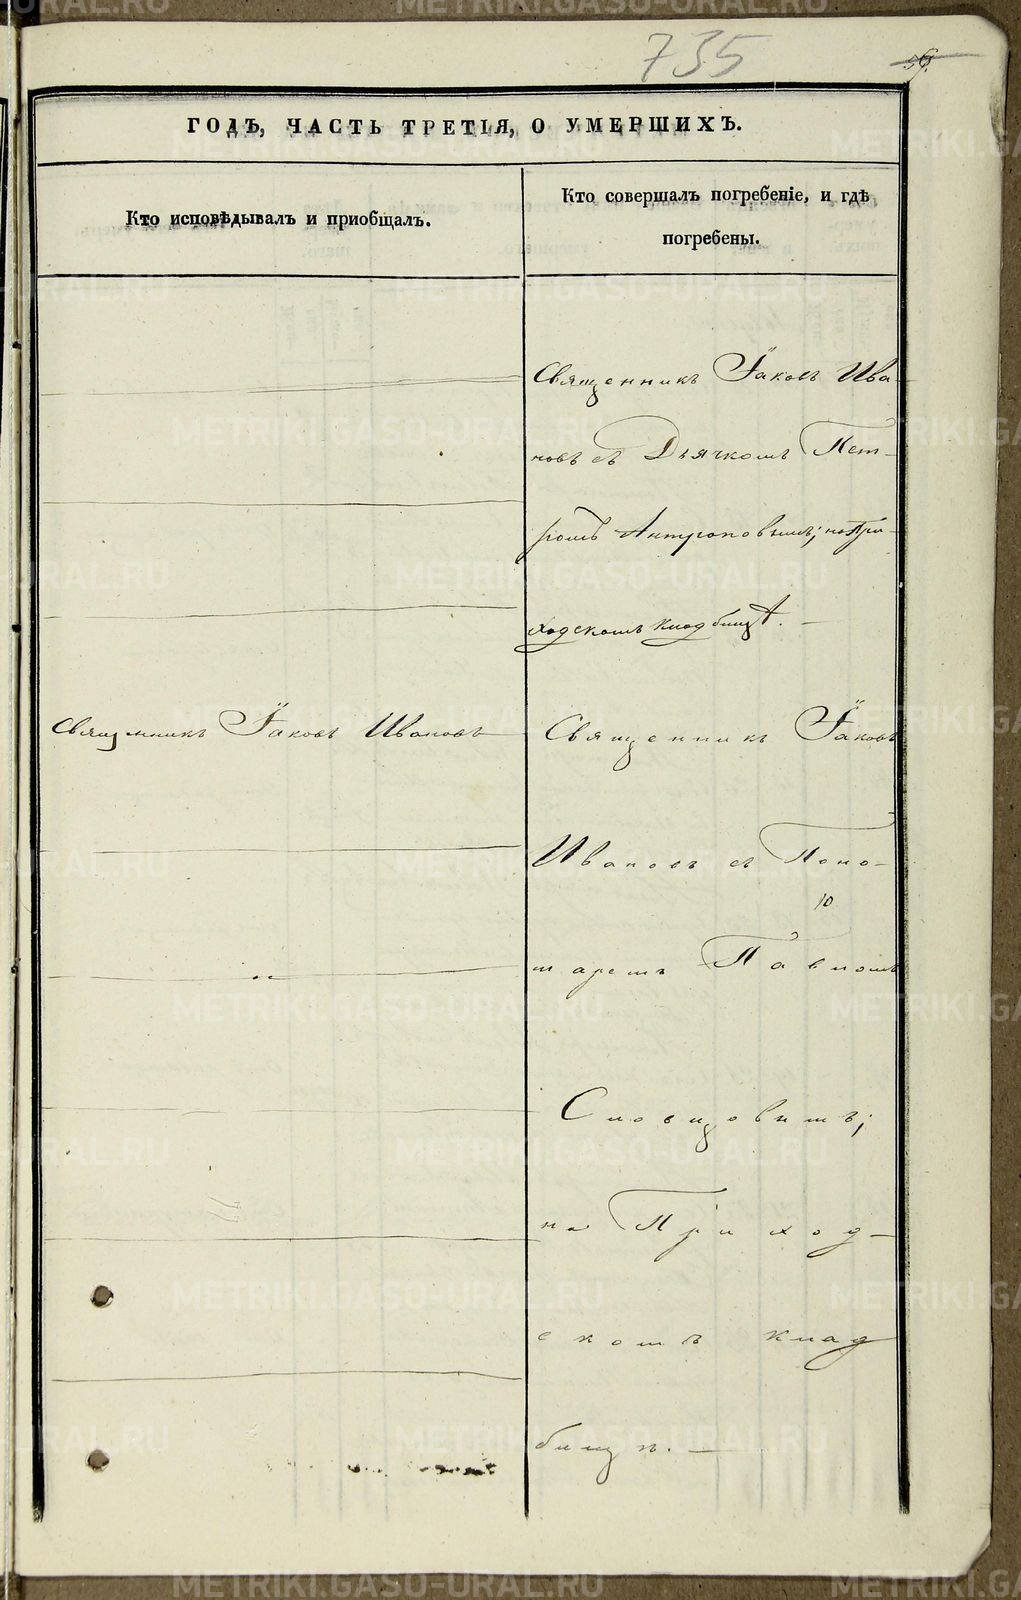 735
59.
ГОДЪ, ЧАСТЬ ТРЕТІЯ, О УМЕРШИХЪ.
Кто исповѣдывалъ и приобщалъ.
Кто совершалъ погребеніе, и гдѣ
погребены.
Священникъ Іаковъ Ива-
новъ съ Дьячкомъ Пет-
ромъ Антроповымъ; на При-
ходскомъ кладбищѣ.
Священникъ Іаковъ Ивановъ
Священникъ Іаковъ
Ивановъ съ Поно-
маремъ Павломъ
Словцовымъ;
на Приход-
скомъ клад
бищѣ.
METRIKI.GASO-URAL.RU